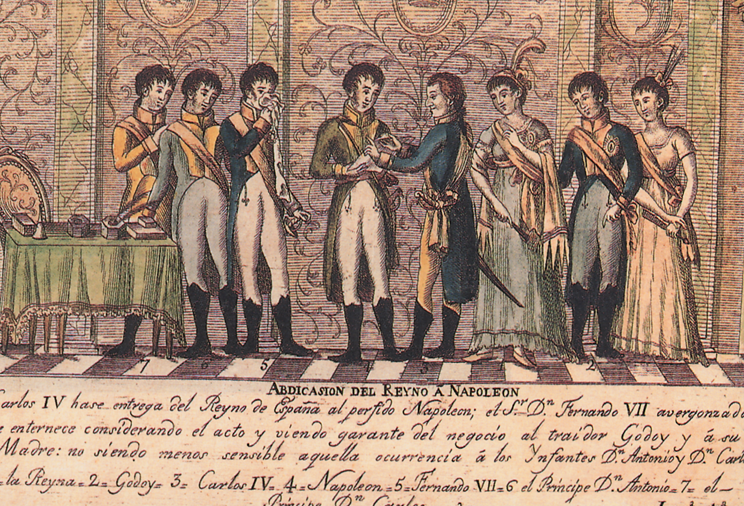 7 6 5 4 3 1 2
ABDICASION DEL REYNO A NAPOLEON
Carlos IV hase entrega del Reyno de España al perfido Napoleon; el S.r D.n Fernando VII avergonzado
se enternece considerando el acto y viendo garante del negocio al traidor Godoy y á su
Madre: no siendo menos sensible aquella ocurrencia á los Ynfantes D.n Antonio y D.n Carl
la Reyna=2=Godoy=3=Carlos IV=4=Napoleon=5=Fernando VII=6 el Principe D.n Antonio=7=el=
Principe D.n Carlos